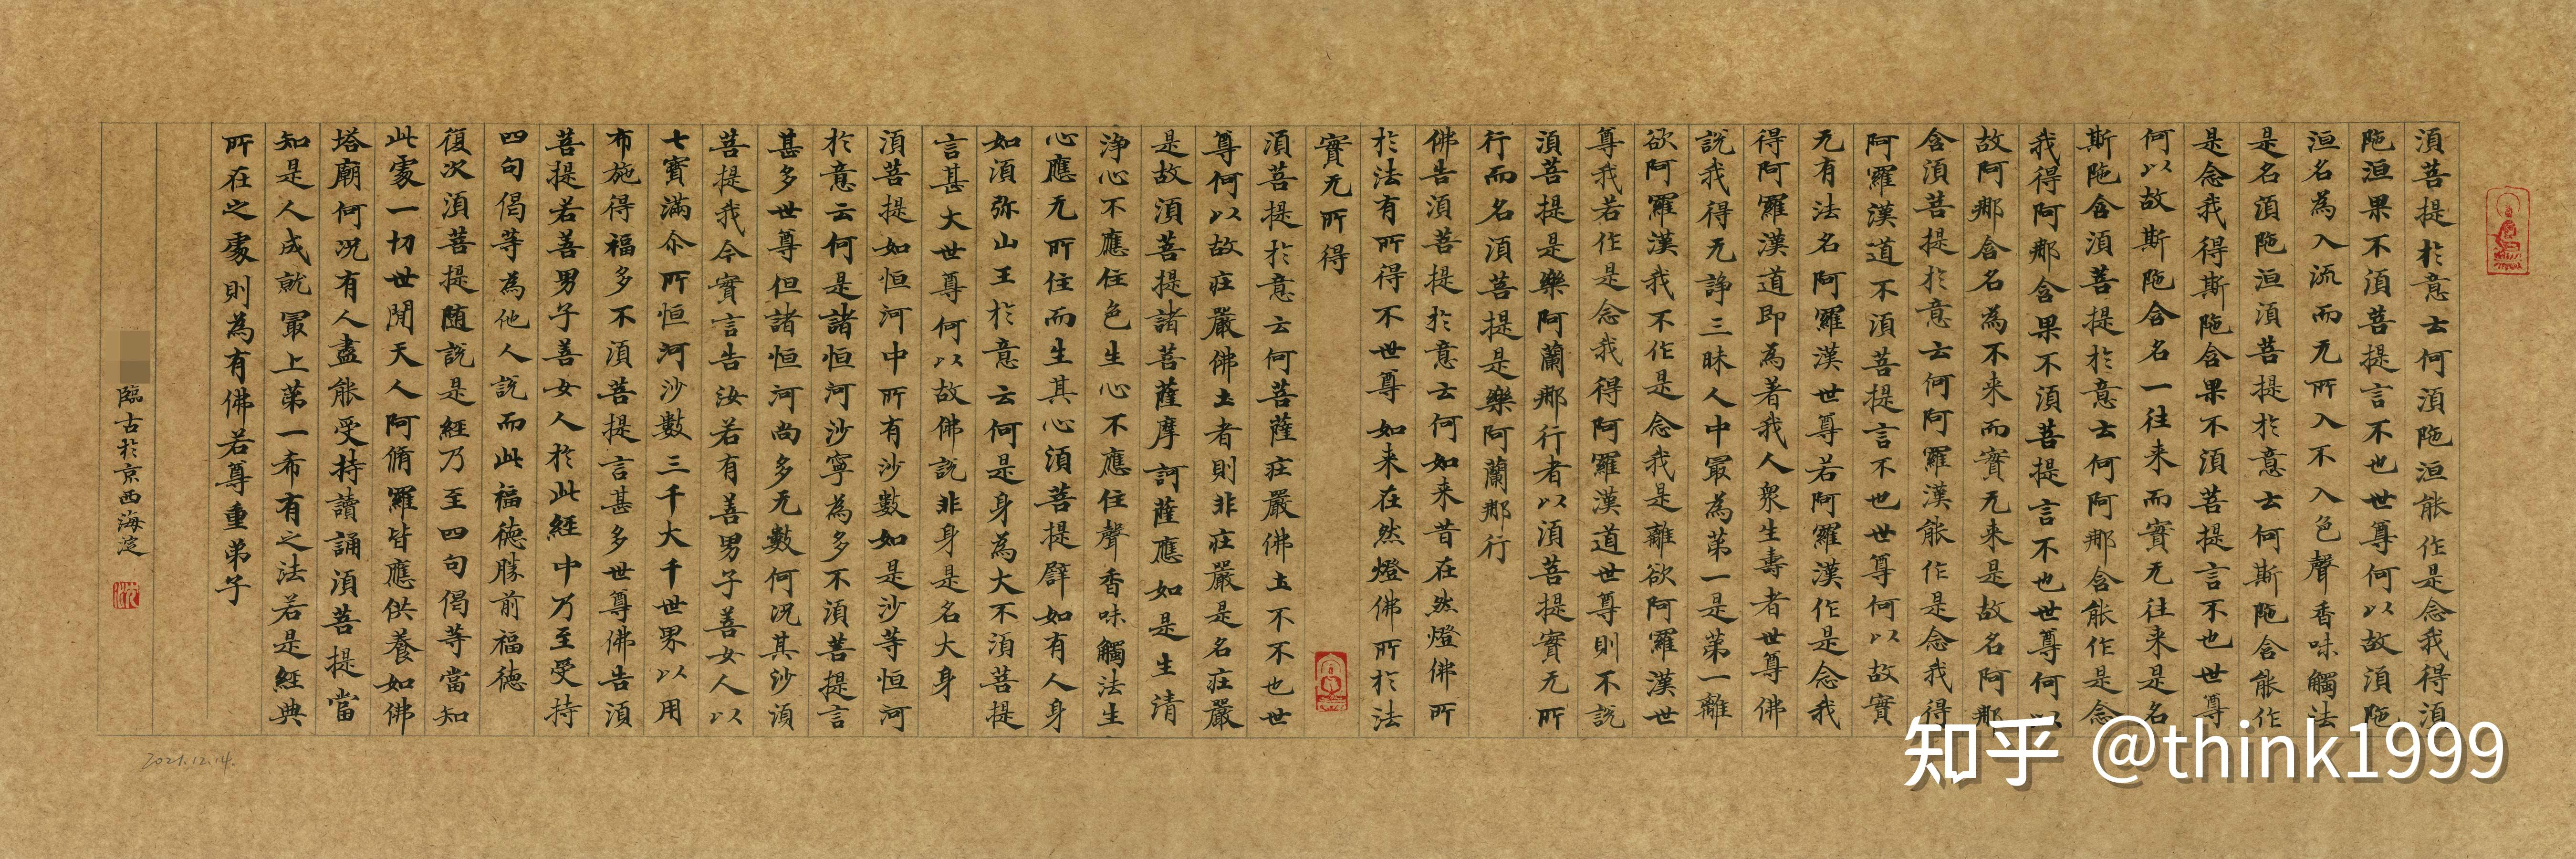 須菩提於意云何須陁洹能作是念我得須
陁洹果不須菩提言不也世尊何以故須陁
洹名為入流而无所入不入色聲香味觸法
是名須陁洹須菩提於意云何斯陁含能作
是念我得斯陁含果不須菩提言不也世尊
何以故斯陁含名一往来而實无往来是名
斯陁含須菩提於意云何阿那含能作是念
我得阿那含果不須菩提言不也世尊何以
故阿那含名為不来而實无来是故名阿那
含須菩提於意云何阿羅漢能作是念我得
阿羅漢道不須菩提言不也世尊何以故實
无有法名阿羅漢世尊若阿羅漢作是念我
得阿羅漢道即為著我人衆生壽者世尊佛
說我得无諍三昧人中冣為苐一是苐一離
欲阿羅漢我不作是念我是離欲阿羅漢世
尊我若作是念我得阿羅漢道世尊則不說
須菩提是樂阿蘭那行者以須菩提實无所
行而名須菩提是樂阿蘭那行
佛告須菩提於意云何如来昔在然燈佛所
於法有所得不世尊如来在然燈佛所於法
實无所得
須菩提於意云何菩薩莊嚴佛圡不不也世
尊何以故莊嚴佛圡者則非莊嚴是名莊嚴
是故須菩提諸菩薩摩訶薩應如是生清
淨心不應住色生心不應住聲香味觸法生
心應无所住而生其心須菩提辟如有人身
如須弥山王於意云何是身為大不須菩提
言甚大世尊何以故佛說非身是名大身
須菩提如恒河中所有沙數如是沙等恒河
於意云何是諸恒河沙寧為多不須菩提言
甚多世尊但諸恒河尚多无數何況其沙須
菩提我今實言告汝若有善男子善女人以
七寶滿尒所恒河沙數三千大千世界以用
布施得福多不須菩提言甚多世尊佛告須
菩提若善男子善女人於此經中乃至受持
四句偈等為他人說而此福德勝前福德
復次須菩提随說是經乃至四句偈等當知
此處一切世間天人阿脩羅皆應供養如佛
塔廟何況有人盡能受持讀誦須菩提當
知是人成就冣上苐一希有之法若是經典
所在之處則為有佛若尊重弟子
臨古於京西海淀
2021.12.14.
知乎 @think1999